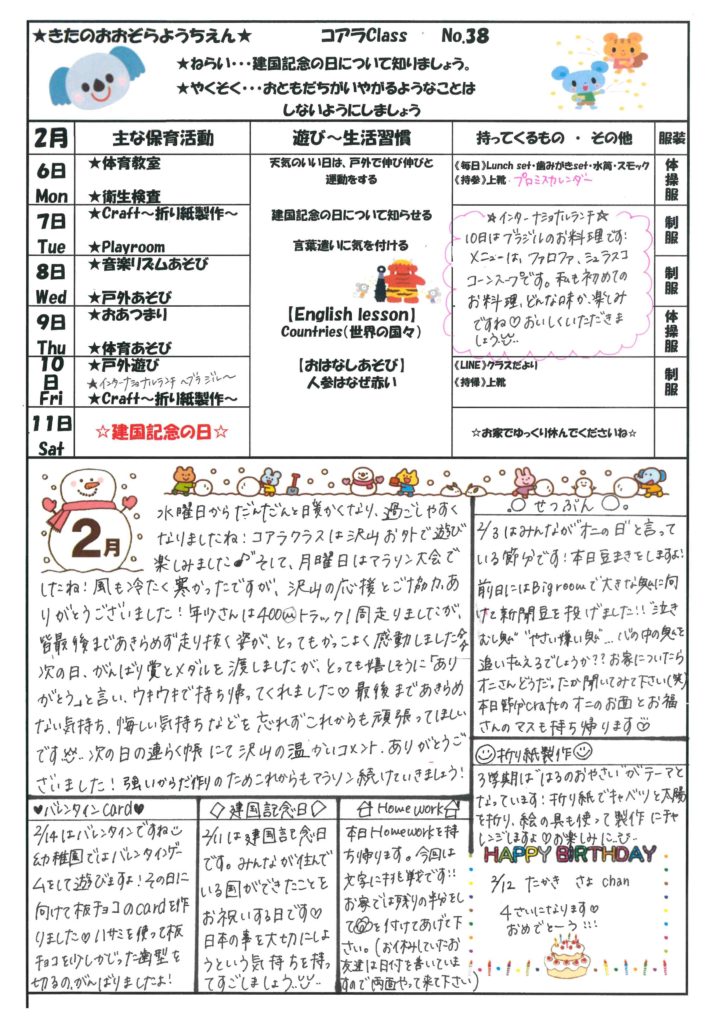 ★きたのおおぞらようちえん★ コアラClass No.38
★ねらい･･･建国記念の日について知りましょう。
★やくそく･･･おともだちがいやがるようなことは
しないようにしましょう
2月 主な保育活動 遊び～生活習慣 持ってくるもの ・ その他 服装
6日 Mon
★体育教室
★衛生検査
天気のいい日は、戸外で伸び伸びと
運動をする
《毎日》Lunch set・歯みがきset・水筒・スモック
《持参》上靴 プロミスカレンダー
体操服
7日 Tue
★Craft～折り紙製作～
★Playroom
建国記念の日について知らせる
言葉遣いに気を付ける
制服
8日 Wed
★音楽リズムあそび
★戸外あそび
制服
9日 Thu
★おあつまり
★体育あそび
【English lesson】
Countries(世界の国々)
体操服
10日 Fri
★戸外遊び
★インターナショナルランチ～ブラジル～
★Craft～折り紙製作～
【おはなしあそび】
人参はなぜ赤い
《LINE》クラスだより
《持帰》上靴
制服
11日 Sat
☆建国記念の日☆
☆お家でゆっくり休んでくださいね☆
☆インターナショナルランチ☆
10日はブラジルのお料理です!
メニューは、ファロファ、シュラスコ
コーンスープです。私も初めての
お料理、どんな味か、楽しみ
ですね♡おいしくいただきま
しょう
2月
水曜日からだんだんと暖かくなり、過ごしやすく
なりましたね!コアラクラスは沢山お外で遊び
楽しみました♪そして、月曜日はマラソン大会で
したね!風も冷たく寒かったですが、沢山の応援とご協力、あ
りがとうございました!年少さんは400mトラック1周走りましたが、
皆最後まであきらめず走り抜く姿が、とってもかっこよく感動しました
次の日、がんばり賞とメダルを渡しましたが、とっても嬉しそうに「あり
がとう」と言い、ウキウキで持ち帰ってくれました♡最後まであきらめ
ない気持ち、悔しい気持ちなどを忘れずこれからも頑張ってほしい
です。次の日の連らく帳にて沢山の温かいコメント、ありがとうご
ざいました!強いからだ作りのためこれからもマラソン続けていきましょう!
せつぶん
2/3はみんなが“オニの日”と言って
いる節分です!本日豆まきをしますよ!
前日にはBigroomで大きな鬼に向
けて新聞豆を投げました!!“泣き
むし鬼”“やさい嫌い鬼”…心の中の鬼を
追い払えるでしょうか??お家についたら
オニさんどうだったか聞いてみて下さい(笑)
本日野がcraftのオニのお面とお福
さんのマスも持ち帰ります
折り紙製作
3学期は“はるのおやさい”がテーマと
なっています!折り紙でキャベツと太陽
を折り、絵の具も使って製作にチャ
レンジしますよ♡お楽しみに
♥バレンタインcard♥
2/14はバレンタインですね
幼稚園ではバレンタインゲー
ムをして遊びますよ!その日に
向けて板チョコのcardを作
りました♡ハサミを使って板
チョコを少しかじった歯型を
切るの、がんばりましたよ!
◇建国記念日◇
2/11は建国記念日
です。みんなが住んで
いる国ができたことを
お祝いする日です♡
日本の事を大切にしよ
うという気持ちを持っ
てすごしましょう
Homework
本日Homeworkを持
ち帰ります。今回は
文字に挑戦です!!
お家では残りの半分をし
てを付けてあげて下
さい。(お休みしていたお
友達は日付を書いています
ので両面やって来て下さい)
HAPPY BIRTHDAY
2/12 たかき さよ chan
4さいになります♡
おめでとーう!!!